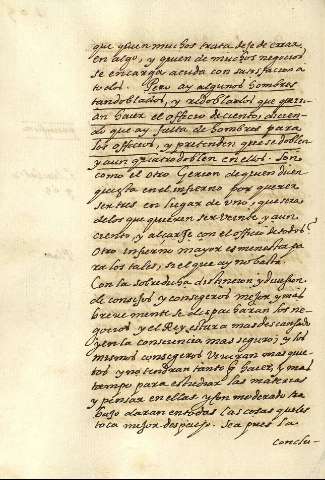 que quien muchos trata dexe de errar
en algo, y quien de muchos negocios
se encarga acuda con satisfacion a
todos. Pero ay algunos hombres
tan doblados, y redoblados que querrian
hazer el officio de ciento, diciendo
que ay falta de hombres para
los officios, y pretenden que se doblen
y aun quatro doblen en ellos. Son
como el otro Gerion de quien dicen
que esta en el infierno por querer
ser tres en lugar de uno, que sera
de los que quieren ser veinte y aun
ciento, y alçarse con el officio de todos?
Otro infierno mayor es menester pa
ra los tales, si el que ay no basta.
Con la sobredicha distincion y division
de consejos y consegeros mejor y mas
brevemente se despacharan los ne-
gocios y el Rey estara mas descansado
y en la consciencia mas seguro; y los
mismos consegeros viviran mas quie-
tos y no tendran tanto q hazer, y mas
tiempo para estudiar las materias
y pensar en ellas y con moderado tra
bajo daran en todas las cosas que les
toca mejor despacho. Sea pues la
conclu-